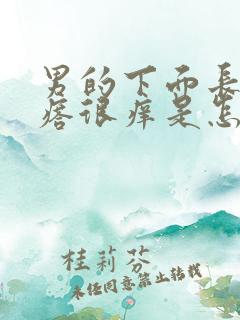 男的下面長
痞很痒是怎
桂莉芬
未经同意禁止转载